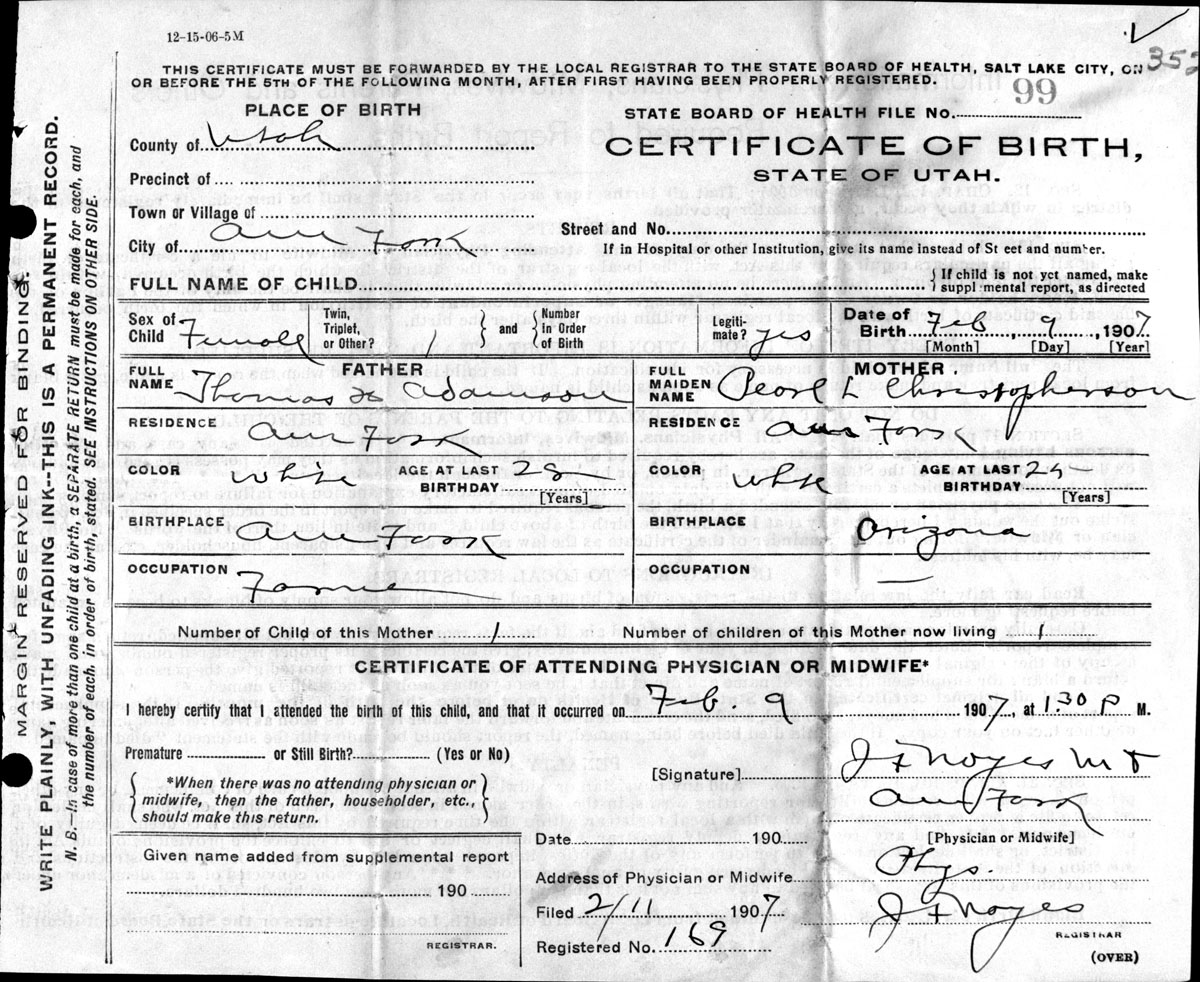 12-15-06-5M
352
THIS CERTIFICATE MUST BE FORWARDED BY THE LOCAL REGISTRAR TO THE STATE BOARD OF HEALTH, SALT LAKE CITY, ON
OR BEFORE THE 5TH OF THE FOLLOWING MONTH, AFTER FIRST HAVING BEEN PROPERLY REGISTERED.
PLACE OF BIRTH
STATE BOARD OF HEALTH FILE No. 99
County of Utah
CERTIFICATE OF BIRTH,
Precinct of
STATE OF UTAH.
Town or Village of
Street and No.
City of Am Fork
If in Hospital or other Institution, give its name instead of St eet and number.
FULL NAME OF CHILD
If child is not yet named, make
suppl mental report, as directed
Sex of Child Female
Twin, Triplet, or Other?
and
Number in Order of Birth
Legiti-mate? yes
Date of Birth Feb 9, 1907
[Month] [Day] [Year]
FATHER
MOTHER
FULL NAME Thomas H Adamson
FULL MAIDEN NAME Pearl L Christopherson
RESIDENCE Am Fork
RESIDENCE Am Fork
COLOR White
AGE AT LAST BIRTHDAY 28 [Years]
COLOR White
AGE AT LAST BIRTHDAY [Years]
BIRTHPLACE Am Fork
BIRTHPLACE
OCCUPATION Farmer
OCCUPATION —
Number of Child of this Mother 1
Number of children of this Mother now living 1
CERTIFICATE OF ATTENDING PHYSICIAN OR MIDWIFE*
I hereby certify that I attended the birth of this child, and that it occurred on Feb. 9 1907, at 1.30 P M.
Premature or Still Birth? (Yes or No)
*When there was no attending physician or
midwife, then the father, householder, etc.,
should make this return.
[Signature] J F Noyes M D
Am Fork
Date 190
[Physician or Midwife]
Given name added from supplemental report
190
Address of Physician or Midwife Phys.
Filed 2/11 1907
J F Noyes
REGISTRAR
REGISTRAR.
Registered No. 169
(OVER)
MARGIN RESERVED FOR BINDING.
WRITE PLAINLY, WITH UNFADING INK--THIS IS A PERMANENT RECORD.
B. In case of more than one child at a birth, a SEPARATE RETURN must be made for each, and
the number of each, in order of birth, stated. SEE INSTRUCTIONS ON OTHER SIDE.